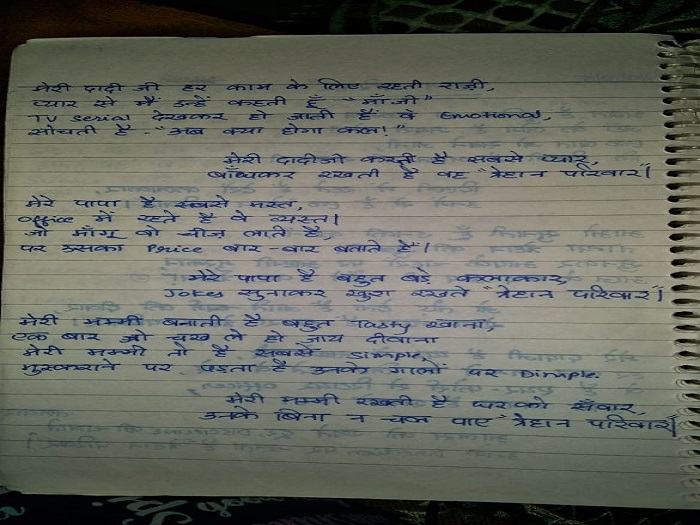 मेरी दादी जी हर काम के लिए रहती राज़ी,
प्यार से मैं उन्हें कहती हूँ "माँजी"
TV serial देखकर हो जाती हैं वे Emotional,
सोचती है - "अब क्या होगा कल!"
मेरी दादीजी करती है सबसे प्यार,
बाँधकर रखती है वह "त्रेहान परिवार"।
मेरे पापा है सबसे मस्त,
office में रहते है वे व्यस्त।
जो माँगू वो चीज़ लाते है,
पर उसका Price बार-बार बताते है।
मेरे पापा है बहुत बड़े कलाकार,
Jokes सुनाकर खुश रखते "त्रेहान परिवार"।
मेरी मम्मी बनाती है बहुत Tasty खाना,
एक बार जो चख ले हो जाय दीवाना
मेरी मम्मी तो है सबसे simple,
मुस्कराने पर पड़ता है उनके गालों पर Dimple.
मेरी मम्मी रखती है घर को सँवार,
उनके बिना न चल पाए "त्रेहान परिवार"।